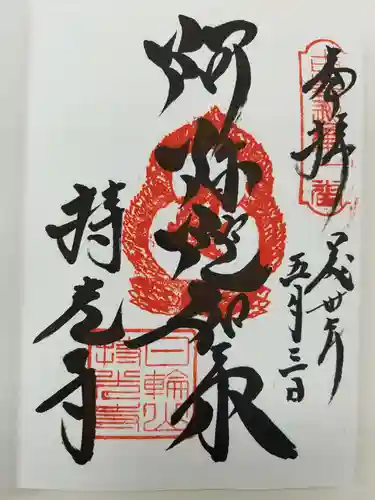 奉拝
平成丗年
五月三日
阿弥陀如来
持光寺
日輪山
持光寺